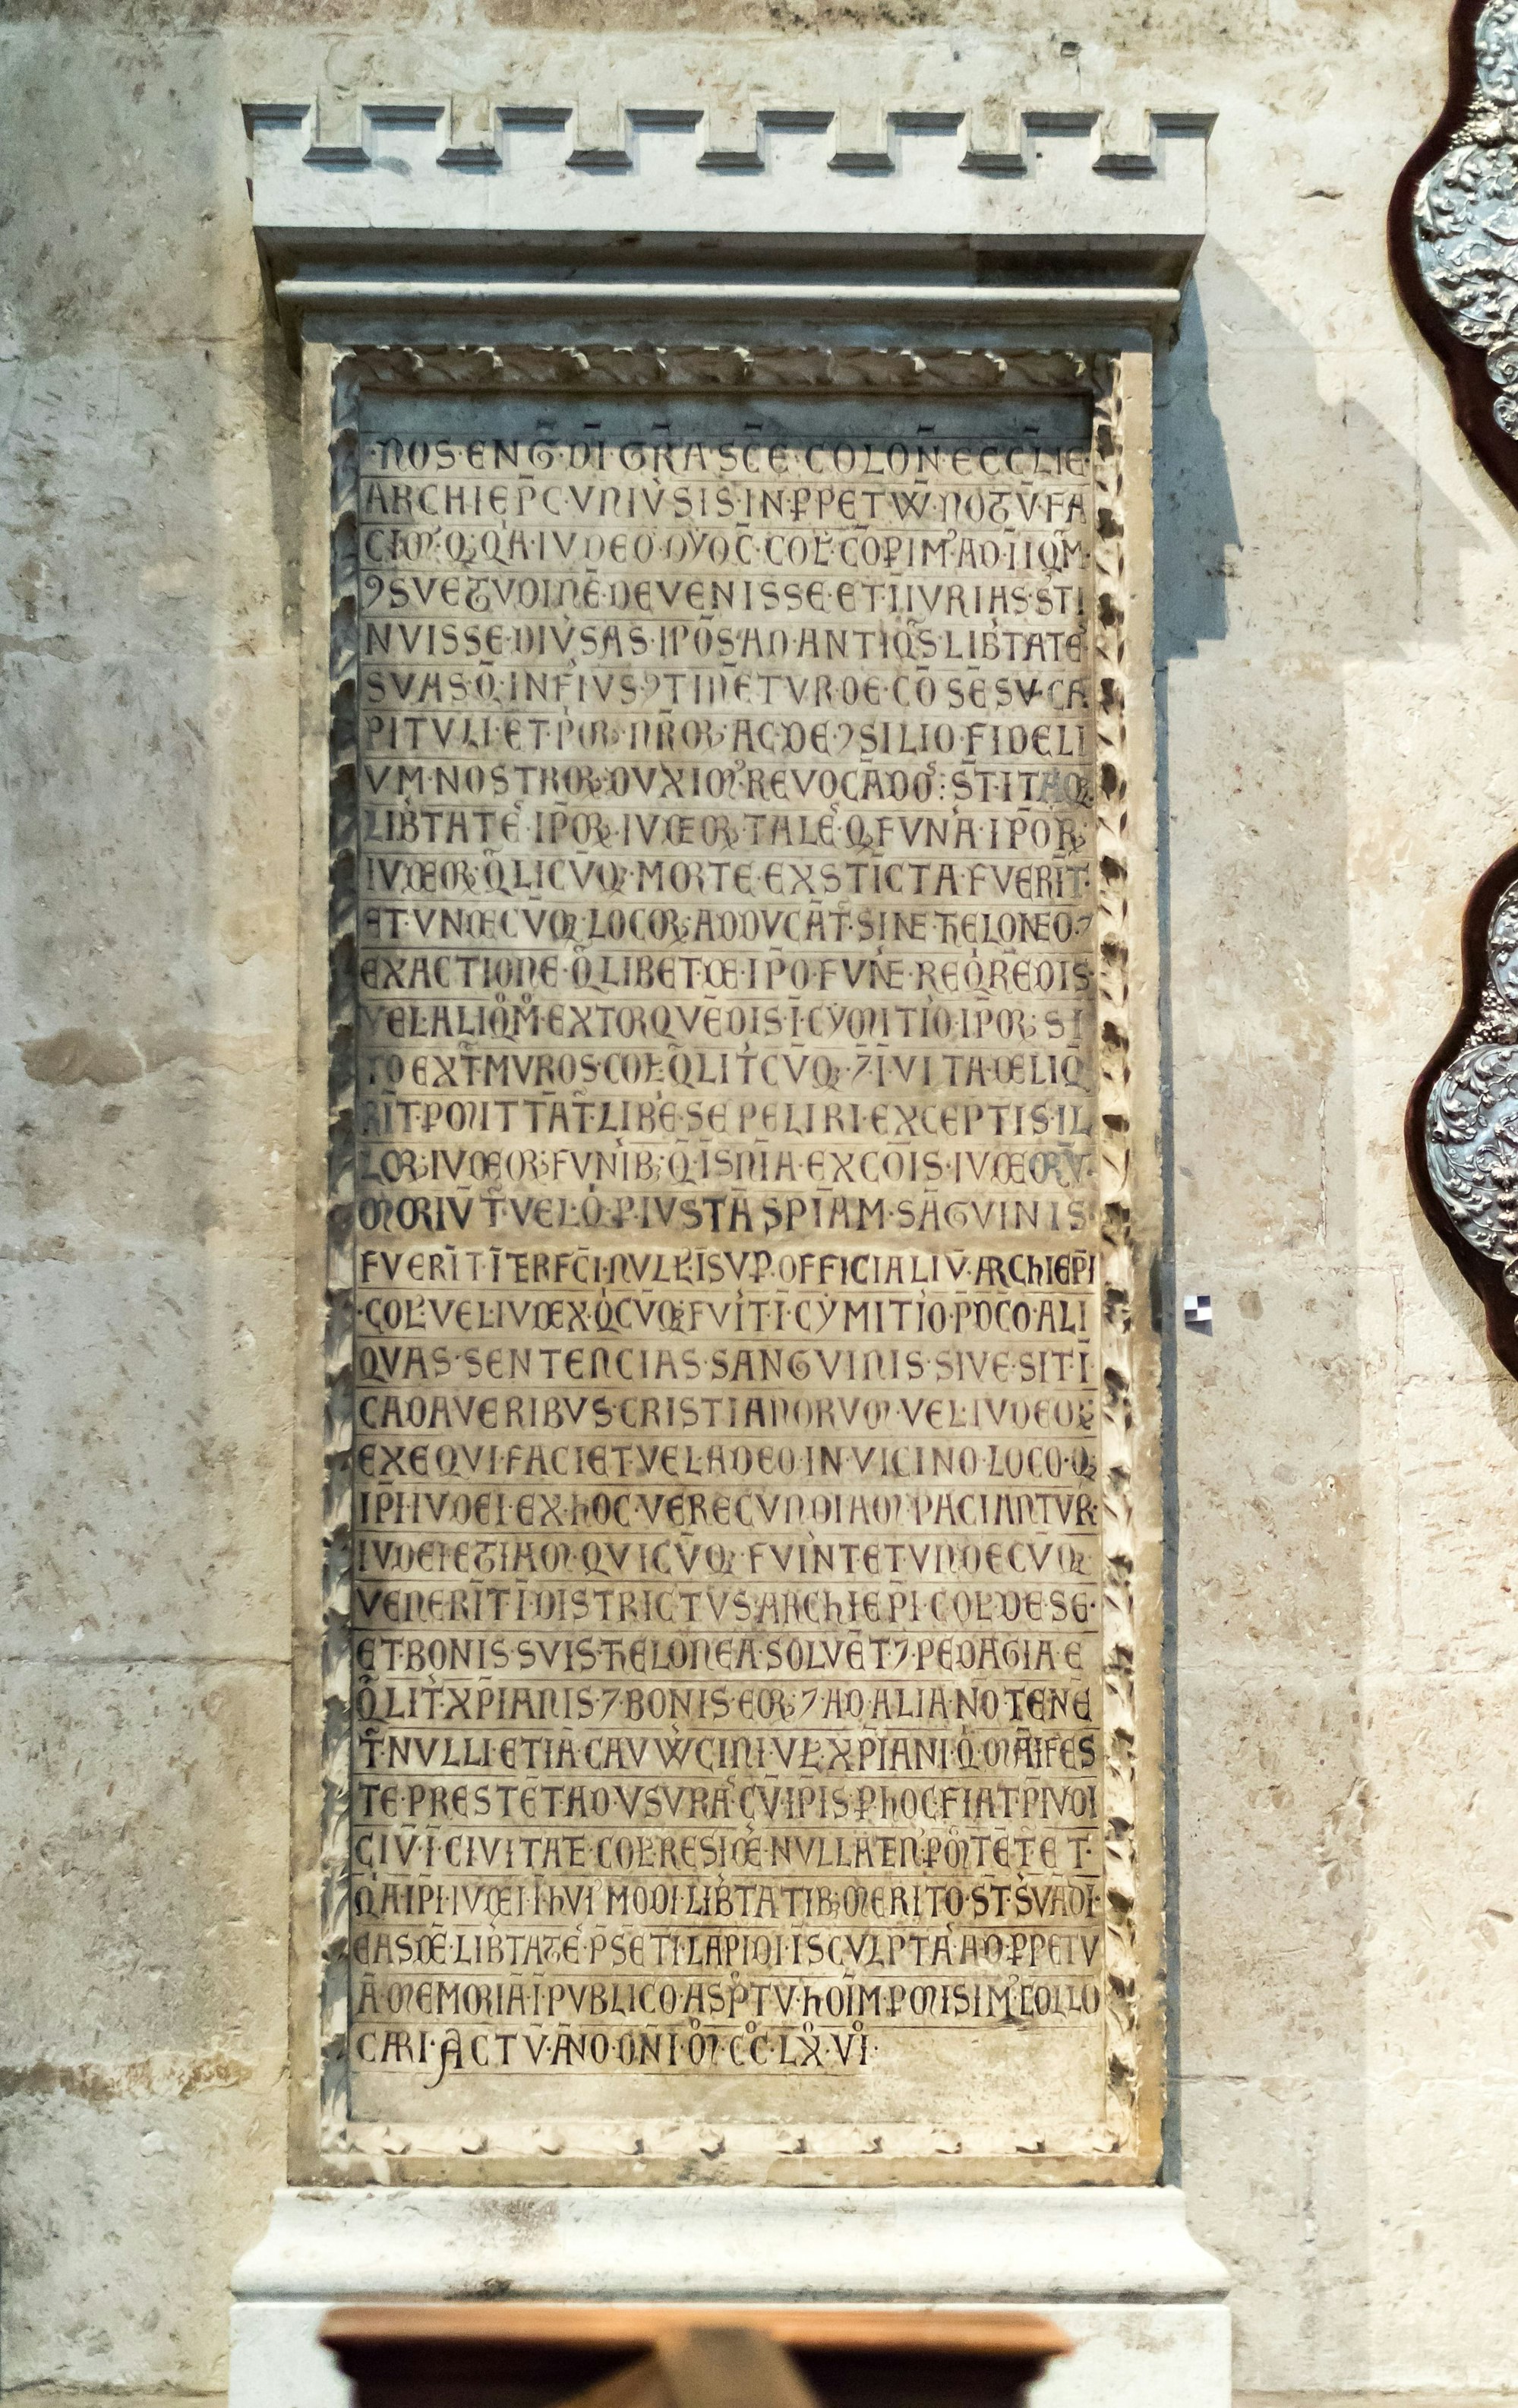 ·NOS·ENG̅·DI̅·GR̅A·SC̅E·COLON̅·ECCL̅IE·
ARCHIEP̅C·VNIV̓SIS·IN·ꝐPETVV̅·NOTV̅·FA
CIMꝰ·Q̣·IVDEO·DYOC̅·COL̕·
ꝯSVETVDINE̅·DEVENISSE·ET·I̅IVRIAS·
NVISSE·DIV̓SAS·IP̅OS·AD·ANTIQ̅S·LIB̓TATE̅
SVAS·Q̅·INF̓IVS·ꝯTINE̅TVR·DE·CO̅SE̅SV·CA
PITVLI·ET·P̓OꝜ·NR̅OꝜ·AC·DE·ꝯSILIO·FIDELI
VM·NOSTROꝜ·DVXIMꝰ·REVOCA̅DOS̓:
LIB̓TATE̅·IP̅OꝜ·IVDEOꝜ·TALE̅·Q·FVNA̓·IP̅OꝜ
IVDEOꝜ·Q̅LICV̅Q·MORTE·EXSTI̅CTA·FVERI̅T·
ET·VNDECV̅Q·LOCOꝜ·ADDVCA̅T̓·SINE·THELONEO·⁊
EXACTIONE·Q̅LIBET·DE·IP̅O·FVN̓E·REQ̓RE̅DIS
VEL·ALIQ̊M̊·EXTORQVE̅DIS·I̅·CYMIT̓IO·IP̅OꝜ·SI
TO·EXT̅·MVROS·COL̕·Q̅LIT̓CV̅Q·⁊·I̅·VITA·DELIQ̅
RI̅T·ꝐMITTA̅T̓·LIB̓E·SEPELIRI·EXCEPTIS·IL
LOꝜ·IVDEOꝜ·FVN̓IBꝫ·Q̅·I̅·SN̅IA·EXCO̅IS·IVDEORV̅·
MORIV̅T̓·VEL·Q̓·Ꝑ·IVSTA̅·SP̅IAM·SA̅GVINIS
FVERI̅T·I̅TERFC̅I·NVLL̕·I̅SVꝐ·OFFICIALIV̅·ARCHIEP̅I
·COL̕·VEL·IVDEX·Q̓CV̅Q·FV̓IT·I̅·CYMIT̓IO·P̓DC̅O·ALI
QVAS·SENTENCIAS·SANGVINIS·SIVE·SIT·I̅
CADAVERIBVS·CRISTIANORVM·VEL·IVDEOꝜ
EXEQVI·FACIET·VEL·ADEO·IN·VICINO·LOCO·Q
IP̅I·IVDEI·EX·HOC·VERECVNDIAM·PACIANTVR·
IVDEI·ETIAM·QVICV̅Q·FV̓INT·ET·VNDECV̅Q
VENERI̅T·I̅·DISTRICTVS·ARCHIEP̅I·COL̕·DE·SE·
ET·BONIS·SVIS·THELONEA·SOLVE̅T·⁊·PEDAGIA·E
Q̅LIT̓·XP̅IANIS·⁊·BONIS·EOꝜ·⁊·AD·ALIA·NO̅·TENE
T̅·NVLLI·ETIA̅·CAVVV̓CINI·VL̕·XP̅IANI·Q̓·MA̅IFES
TE·PRESTE̅T·AD·VSVRA̅·CV̅·IP̅IS·Ꝑ·HOC·FIAT·P̓IVDI
CIV̅·I̅·CIVITATE·COL̕·RESIDE̅·NVLLATEN̓·ꝐMITE̅T̓·ET·
Q̓A·IP̅I·IVDEI·I̅·HVIꝰMODI·LIB̓TATIBꝫ·MERITO·ST̅·S̓VA̅DI·
EASDE̅·LIB̓TATE̅·P̅SE̅TI·LAPIDI·I̅SCVLPTA̅·AD·ꝐPETV
A̅·MEMORIA̅·I̅·PVBLICO·ASP̓TV·HOI̅M·ꝐMISIMꝰ·COLLO
CARI·ACTV̅·A̅NO·DN̅I·M̊·CC̊·LX̊·VI̊·